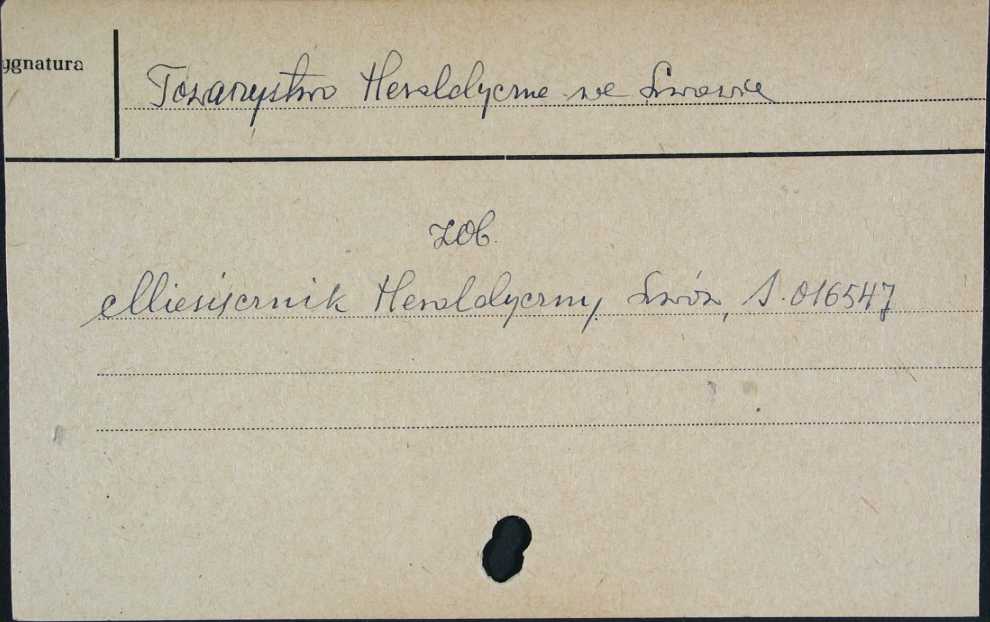 ygnatura
Towarzystwo Heraldyczne we Lwowie
zob.
Miesięcznik Heraldyczny Lwów, S. 016547